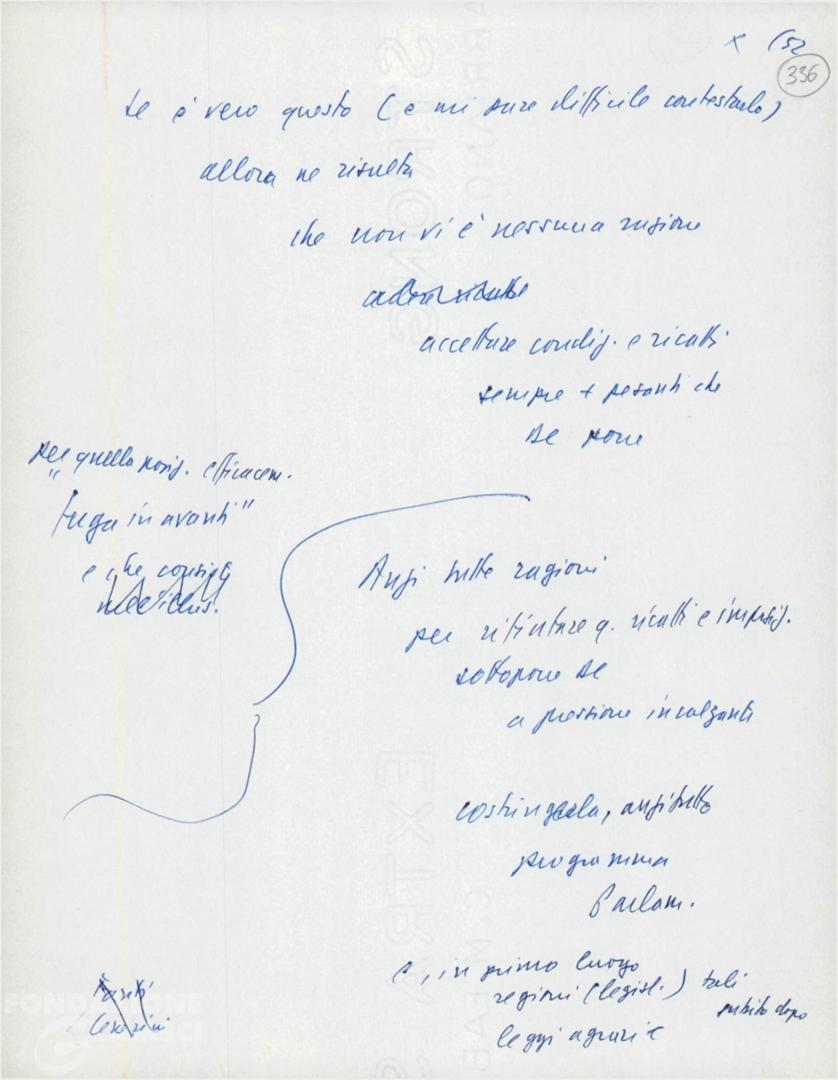 x (52
336
se è vero questo (e mi pare difficile contestarlo)
allora ne risulta
che non vi è nessuna ragione
accettare condiz. e ricatti
sempre + pesanti che
DC pone
per quella posiz. efficacem.
"fuga in avanti"
e che consigl
Anzi tutte ragioni
per rifiutare q. ricatti e imposiz.
sottoporre DC
a pressione incalzante
costringerla, anzitutto
programma
Parlam.
e, in primo luogo
regioni (legisl.) tali
subito dopo
leggi agrarie
Fanti
Cesarini
FONDAZIONE